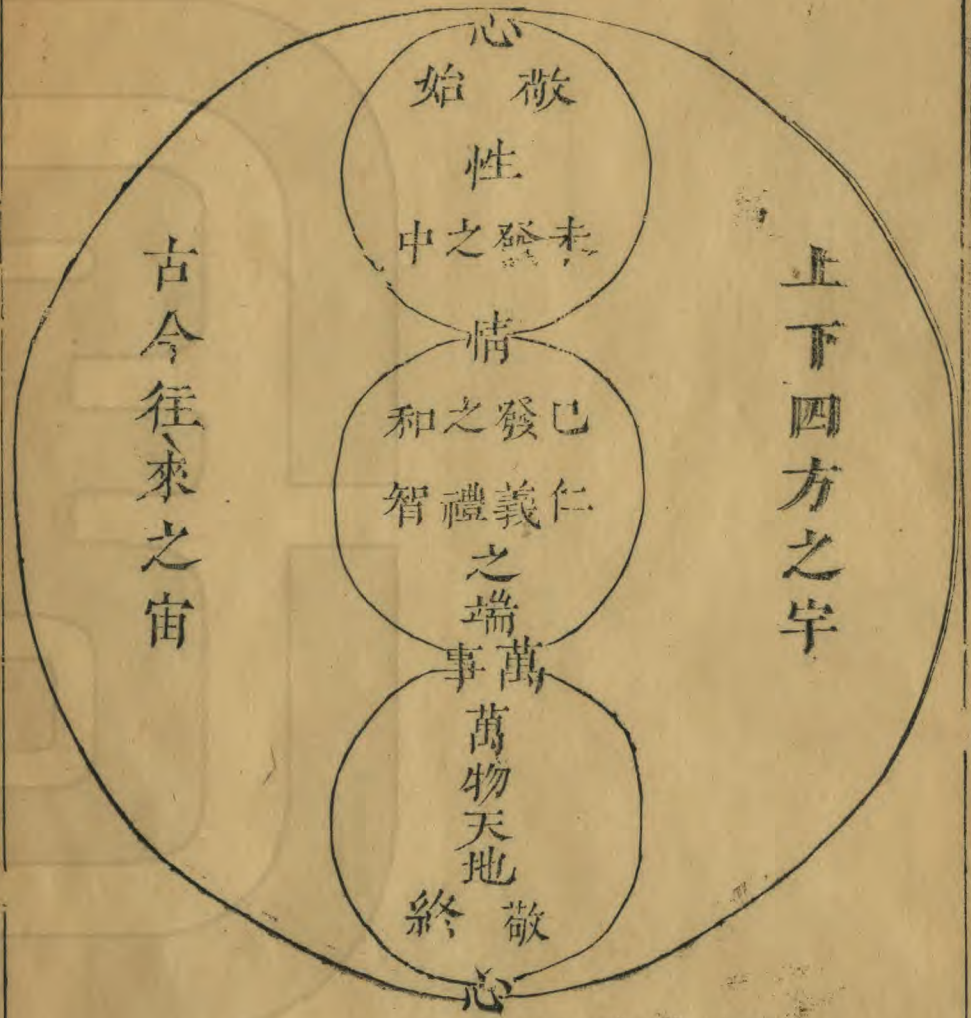 上下四方之宇
心
敬始
性
未發之中
情
已發之和
仁義禮智
之端
萬事
萬物天地
敬終
心
古今往來之宙